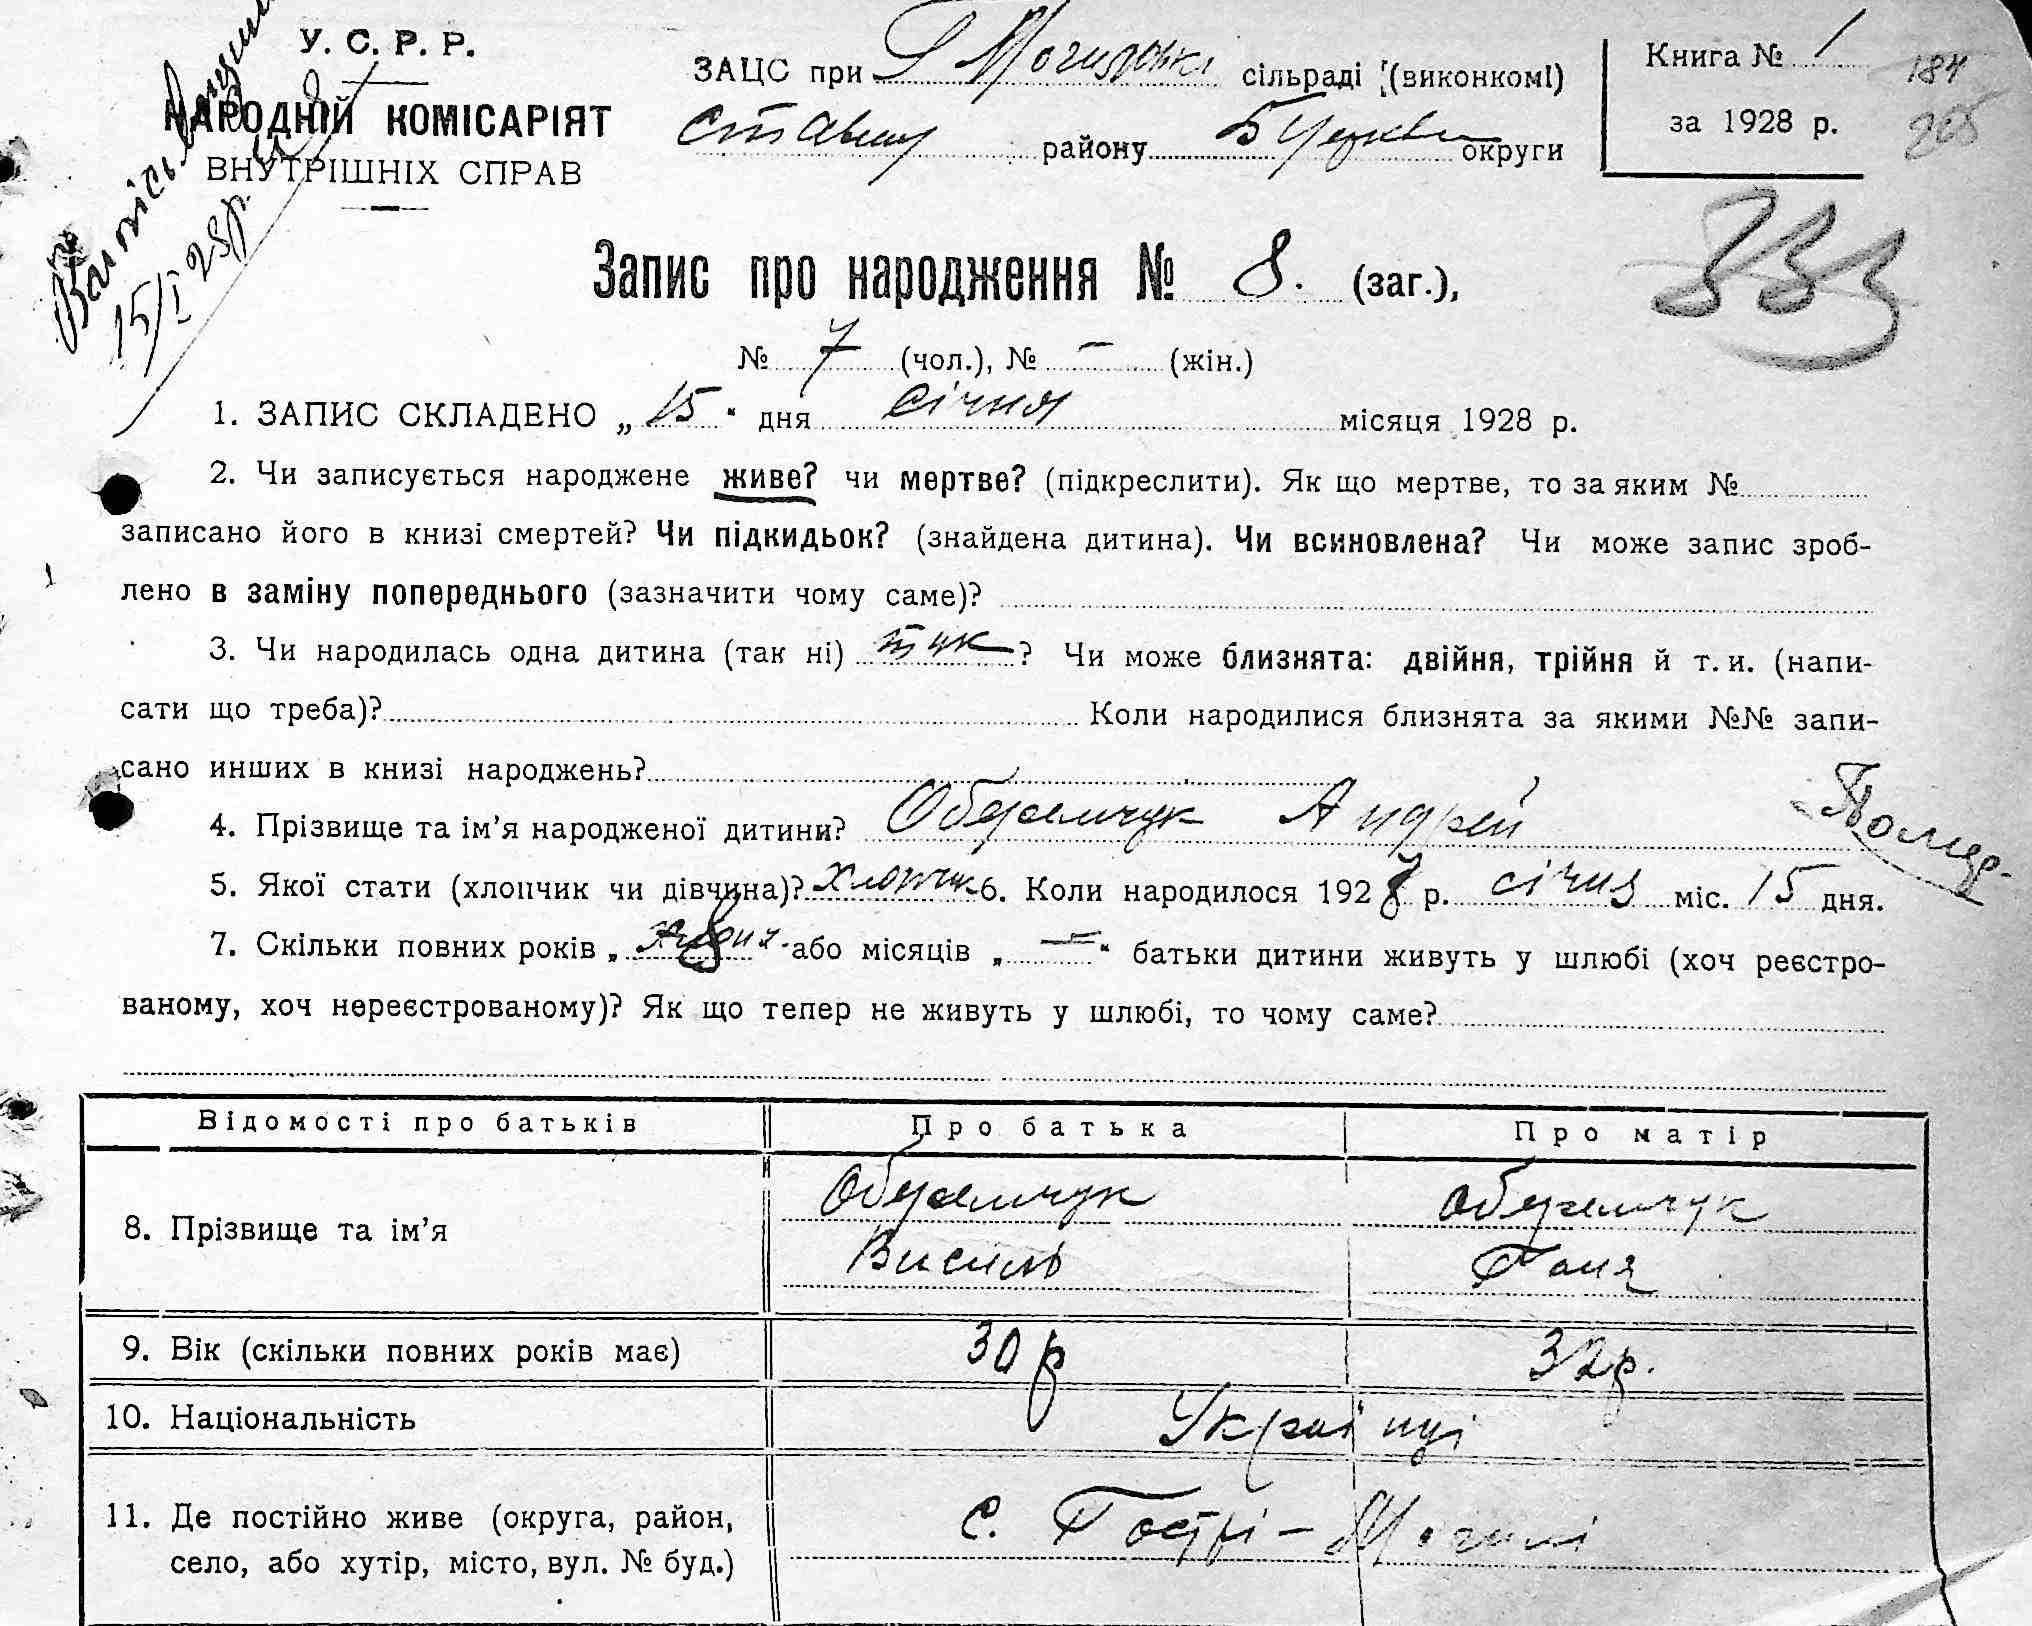 У. С. Р. Р.
НАРОДНІЙ КОМІСАРІЯТ
ВНУТРІШНІХ СПРАВ
15/I 28 р.
ЗАЦС при Г Могилські сільраді (виконкомі)
Ставищ району Б Церкви округи
Книга № 1
за 1928 р.
184
205
333
Запис про народження № 8. (заг.),
№ 7 (чол.), № — (жін.)
1. ЗАПИС СКЛАДЕНО „ 15 “ дня січня місяця 1928 р.
2. Чи записується народжене живе? чи мертве? (підкреслити). Як що мертве, то за яким №
записано його в книзі смертей? Чи підкидьок? (знайдена дитина). Чи всиновлена? Чи може запис зроб-
лено в заміну попереднього (зазначити чому саме)?
3. Чи народилась одна дитина (так ні) так ? Чи може близнята: двійня, трійня й т. и. (напи-
сати що треба)? Коли народилися близнята за якими №№ запи-
сано инших в книзі народжень?
4. Прізвище та ім’я народженої дитини? Оберемчук Андрей
Помер
5. Якої стати (хлопчик чи дівчина)? хлопчик 6. Коли народилося 1928 р. січня міс. 15 дня.
7. Скільки повних років „ 8 “ або місяців „ — “ батьки дитини живуть у шлюбі (хоч реєстро-
ваному, хоч нереєстрованому)? Як що тепер не живуть у шлюбі, то чому саме?
Відомості про батьків Про батька Про матір
8. Прізвище та ім’я Оберемчук Оберемчук
Василь Ганя
9. Вік (скільки повних років має) 30 р 32 р.
10. Національність Українці
11. Де постійно живе (округа, район, с. Гострі-Могилі
село, або хутір, місто, вул. № буд.)